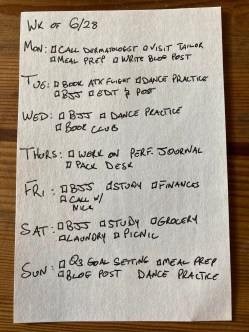 WK OF 6/28
MON: □ CALL DERMATOLOGIST □ VISIT TAILOR
□ MEAL PREP □ WRITE BLOG POST
TUE: □ BOOK ATX FLIGHT □ DANCE PRACTICE
□ BJJ □ EDIT & POST
WED: □ BJJ □ DANCE PRACTICE
□ BOOK CLUB
THURS: □ WORK ON PERF. JOURNAL
□ PACK DESK
FRI: □ BJJ □ STUDY □ FINANCES
□ CALL W/
NICK
SAT: □ BJJ □ STUDY □ GROCERY
□ LAUNDRY □ PICNIC
SUN: □ Q3 GOAL SETTING □ MEAL PREP
□ BLOG POST DANCE PRACTICE